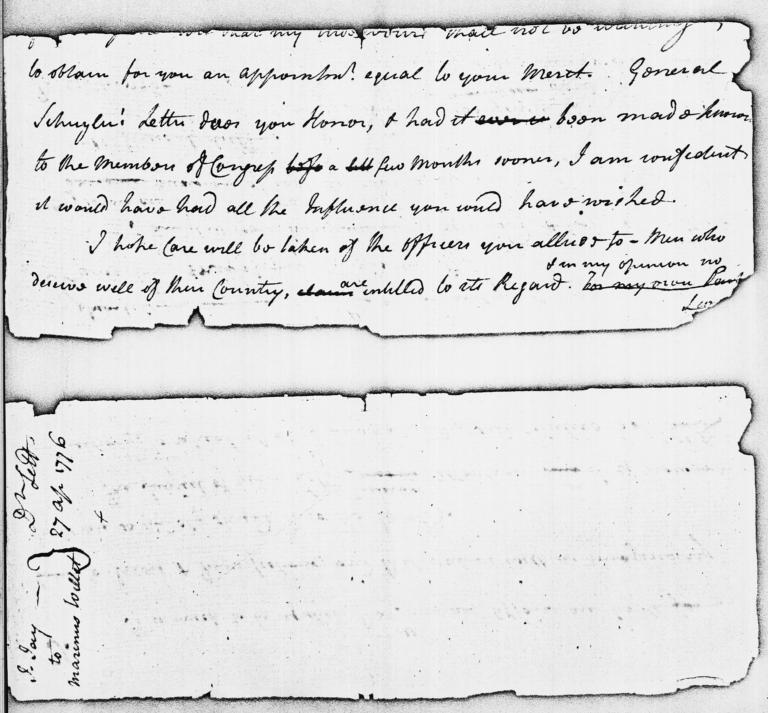 that my shall not be wanting,
to obtain for you an appointmt. equal to your Merit. General
Schuyler's Letter does you Honor, & had it ever been made known
to the Members of Congress befo a few Months sooner, I am confident
it would have had all the Influence you could have wished.
I hope Care will be taken of the officers you allude to – Men who
& in my opinion no
deserve well of their Country, are entitled to its Regard. for my own Part
J. Jay — Dr Lettr.
to 27 Ap 1776
Marinus Willet